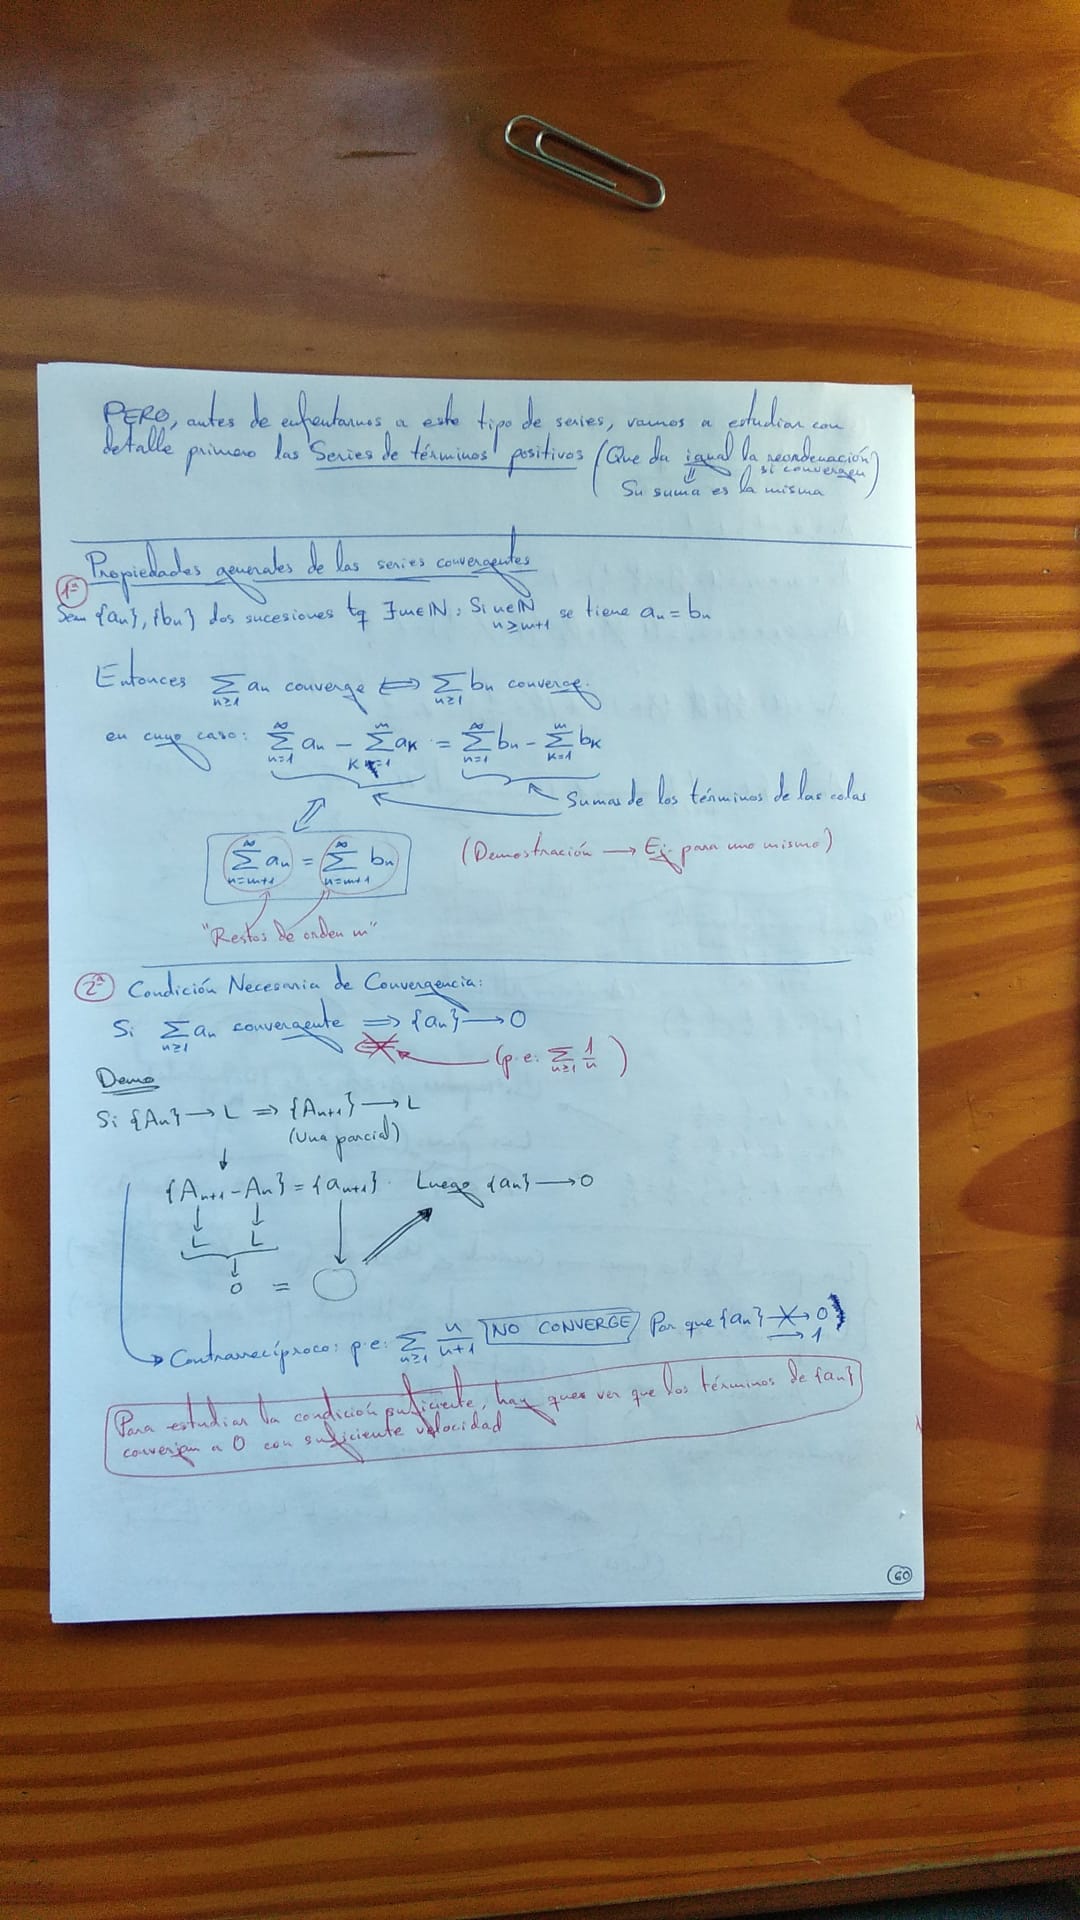 PERO, antes de enfrentarnos a este tipo de series, vamos a estudiar con
detalle primero las Series de términos positivos (Que da igual la reordenación
si convergen
⇓
Su suma es la misma)
Propiedades generales de las series convergentes
1ª
Sean {an}, {bn} dos sucesiones tq ∃m∈ℕ : Si n∈ℕ n≥m+1 se tiene an = bn
Entonces ∑n≥1 an converge ⟺ ∑n≥1 bn converge.
en cuyo caso: ∑n=1^∞ an − ∑K=1^m aK = ∑n=1^∞ bn − ∑K=1^m bK
Sumas de los términos de las colas
∑n=m+1^∞ an = ∑n=m+1^∞ bn (Demostración → Ej. para uno mismo)
"Restos de orden m"
2ª Condición Necesaria de Convergencia:
Si ∑n≥1 an convergente ⟹ {an} → 0
⟸ (p.e: ∑n≥1 1/n)
Demo
Si {An} → L ⟹ {An+1} → L
(Una parcial)
↓
{An+1 - An} = {an+1}. Luego {an} → 0
↓ ↓
L L
↓
0 =
Contrarrecíproco: p.e: ∑n≥1 n/n+1 NO CONVERGE Por que {an} ↛ 0
→ 1
Para estudiar la condición suficiente, hay que ver que los términos de {an}
converjan a 0 con suficiente velocidad
60